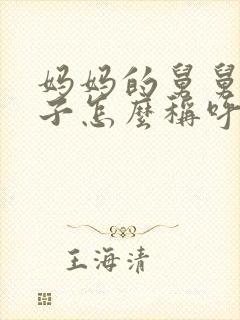 妈妈的舅舅
子怎麼稱呼
王海清